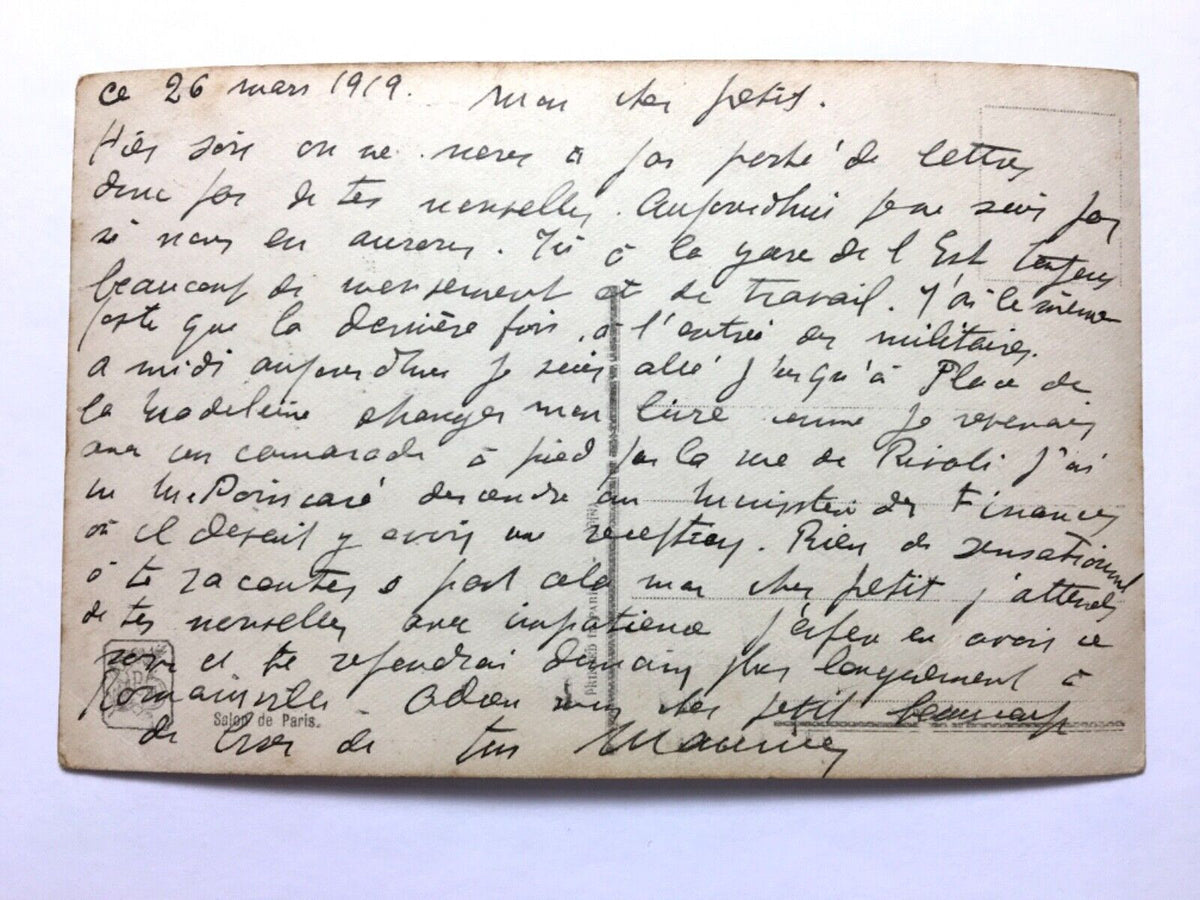 ce 26 mars 1919. Mon cher petit.
Hier soir on ne nous a pas porté de lettres
donc pas de tes nouvelles. Aujourdhui je ne sais pas
si nous en aurons. Ici à la gare de l Est toujours
beaucoup de mouvement et de travail. J'ai le même
poste que la dernière fois, à l'entrée des militaires.
a midi aujourdhui je suis allé j'usqu'à Place de
la Madeleine changer mon livre comme je revenais
avec un camarade à pied par la rue de Rivoli j'ai
vu Mr Poincaré descendre au Ministère des Finances
où il devait y avoir une réception. Rien de sensationnel
à te raconter à part cela mon cher petit j'attends
de tes nouvelles avec impatience j'espère en avoir ce
soir et te répondrai demain plus longuement à
Romainville. Adieu mon cher petit beaucoup
de de ton Maurice
PRINTED IN PARIS
Salon de Paris.